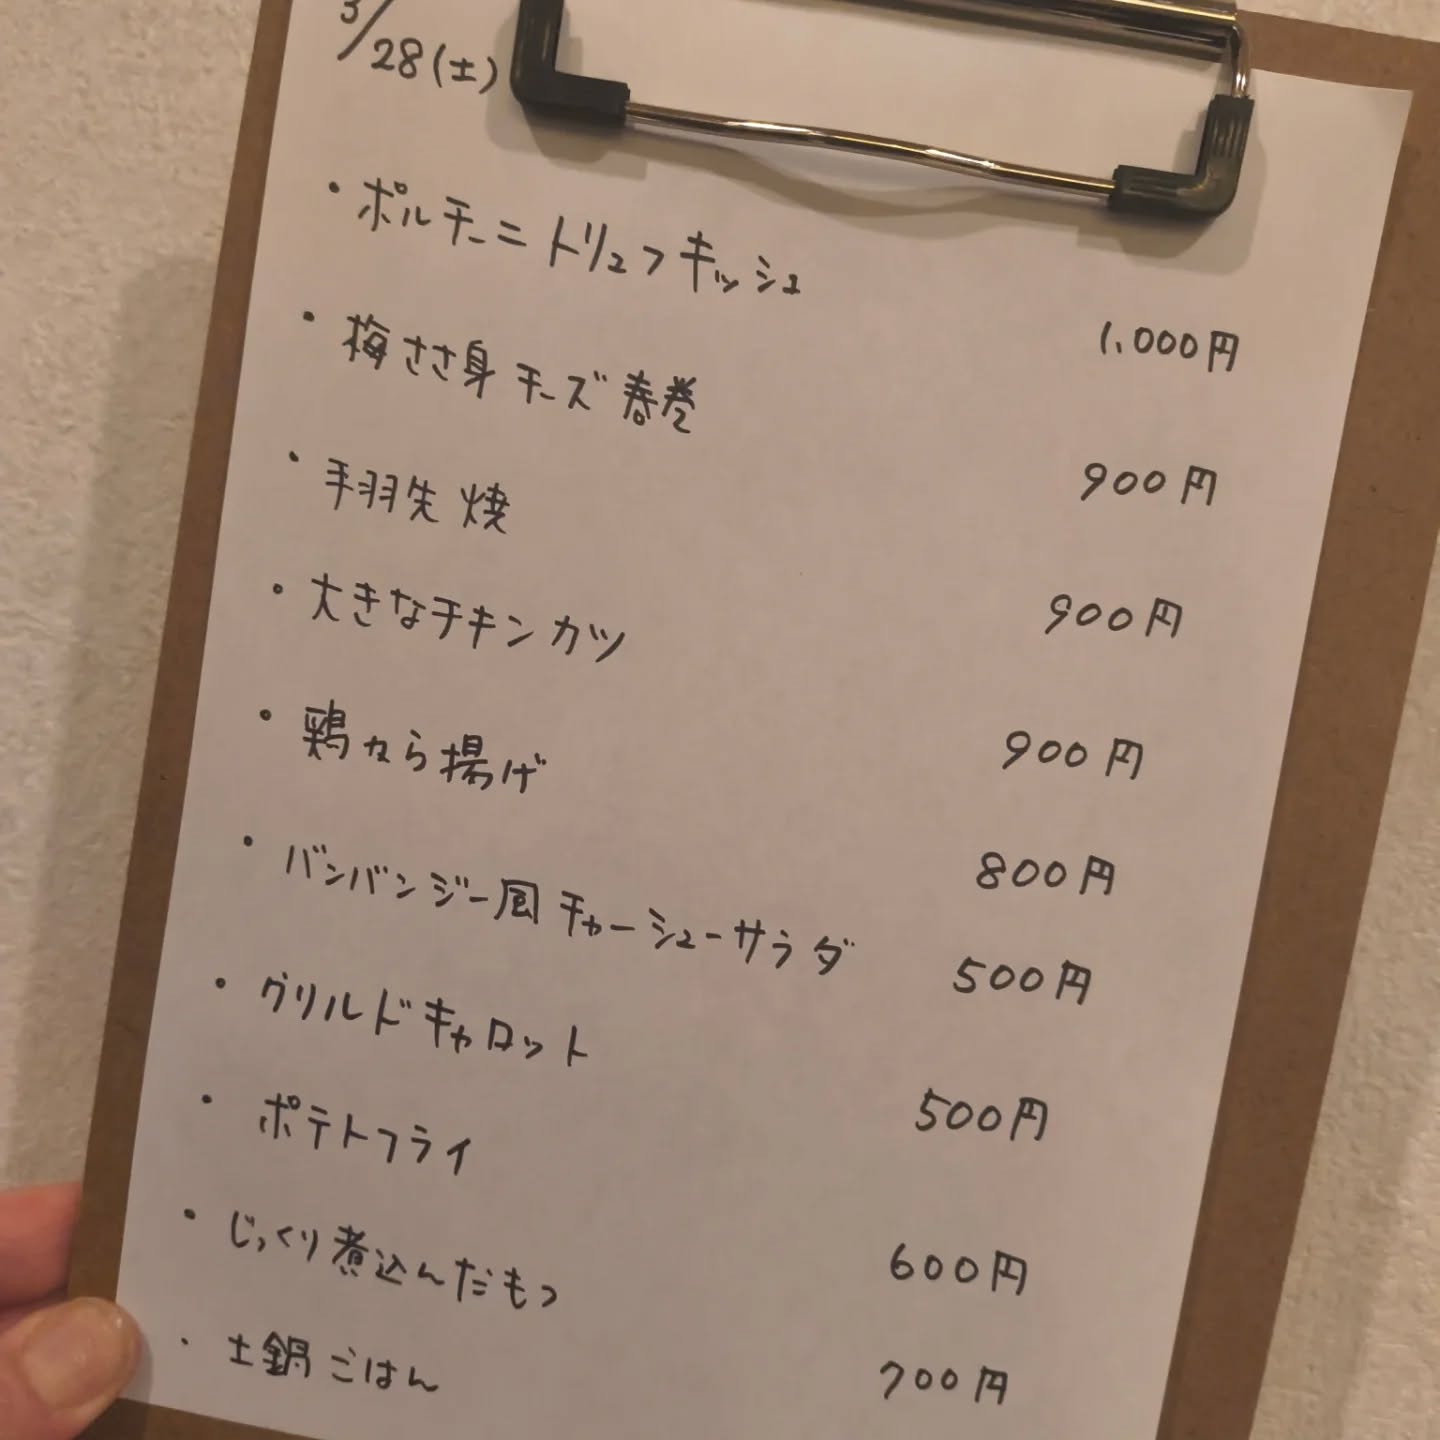 3/28(土)
・ポルチーニトリュフキッシュ 1,000円
・梅ささ身チーズ春巻 900円
・手羽先焼 900円
・大きなチキンカツ 900円
・鶏から揚げ 800円
・バンバンジー風チャーシューサラダ 500円
・グリルドキャロット 500円
・ポテトフライ 600円
・じっくり煮込んだもつ 700円
・土鍋ごはん